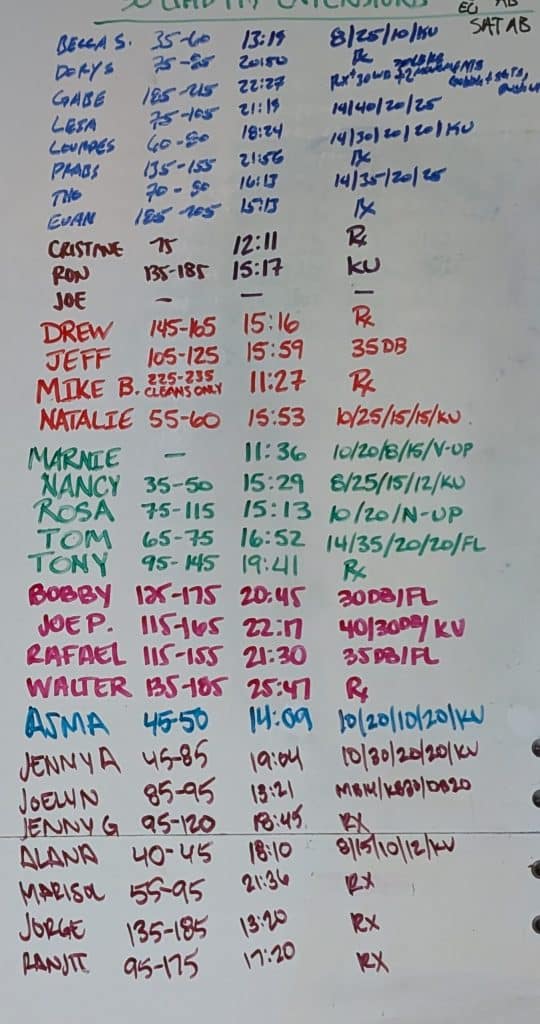 EXTENSIONS
SAT AB
BECCA S. 35-60 13:19 8/25/10/KU
DORYS 75-85 20:50 Rx
GABE 185-215 22:27 RX+30WB
LETA 75-105 21:19 14/40/20/25
LOURDES 60-80 18:24 14/30/20/20/KU
PRABS 135-155 21:56 Rx
THO 70-80 16:13 14/35/20/25
EVAN 185-205 15:13 Rx
CRISTANE 75 12:11 Rx
RON 135-185 15:17 KU
JOE — — —
DREW 145-165 15:16 Rx
JEFF 105-125 15:59 35DB
MIKE B. 225-235 CLEANS ONLY 11:27 Rx
NATALIE 55-60 15:53 10/25/15/15/KU
MARNIE — 11:36 10/20/8/15/V-UP
NANCY 35-50 15:29 8/25/15/12/KU
ROSA 75-115 15:13 10/20/N-UP
TOM 65-75 16:52 14/35/20/20/FL
TONY 95-145 19:41 Rx
BOBBY 125-175 20:45 30DB/FL
JOE P. 115-165 22:17 40/30DB/KU
RAFAEL 115-155 21:30 35DB/FL
WALTER 135-185 25:47 Rx
ASMA 45-50 14:09 10/20/10/20/KU
JENNY A 45-85 19:04 10/30/20/20/KU
JOELYN 85-95 13:21 MB14/KB30/DB20
JENNY G 95-120 18:45 RX
ALANA 40-45 18:10 8/15/10/12/KU
MARISOL 55-95 21:36 RX
JORGE 135-185 13:20 RX
RANJIT 95-175 17:20 RX